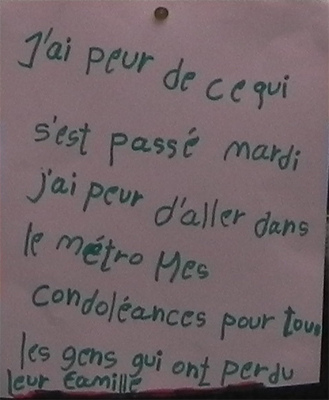 J'ai peur de ce qui
s'est passé mardi
j'ai peur d'aller dans
le métro Mes
condoléances pour tous
les gens qui ont perdu
leur famille